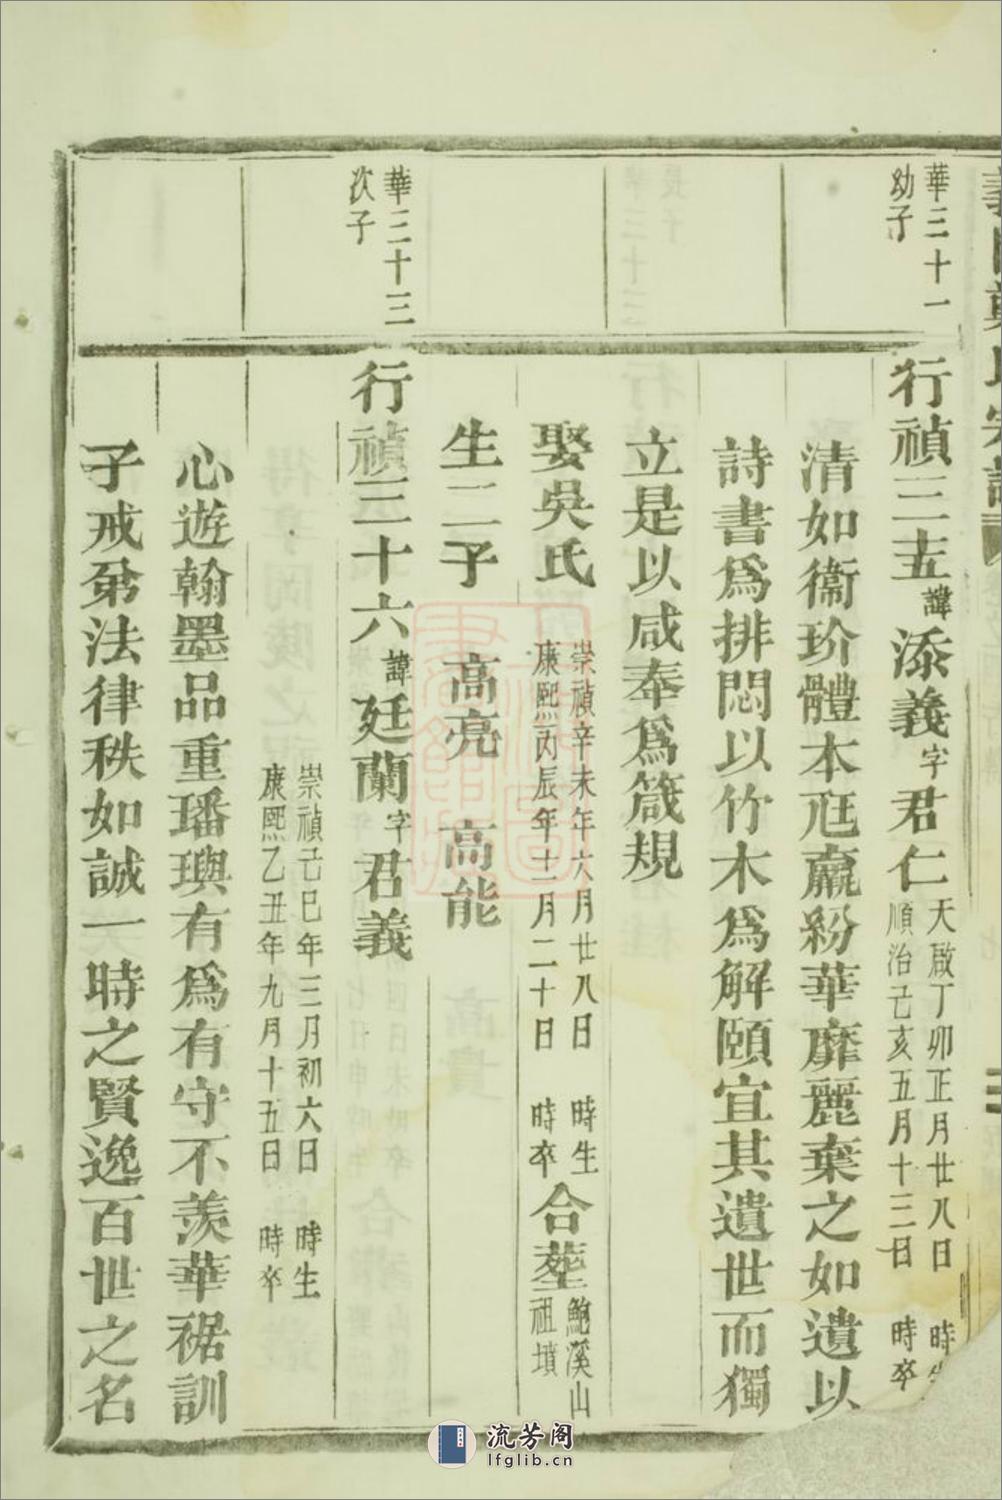 華三十一
幼子
行禎三五諱添義字君仁
天啟丁卯正月廿八日 時生
順治己亥五月十三日 時卒
清如衞玠體本尫羸紛華靡麗棄之如遺以
詩書爲排悶以竹木爲解頤宜其遺世而獨
立是以咸奉爲箴規
娶吳氏
崇禎辛未年六月廿八日 時生
康熙丙辰年十二月二十日 時卒
合塟
鮑溪山
祖墳
生二子 高亮 高能
華三十三
次子
行禎三十六諱廷蘭字君義
崇禎己巳年三月初六日 時生
康熙乙丑年九月十五日 時卒
心遊翰墨品重璠璵有爲有守不羨華裾訓
子戒弟法律秩如誠一時之賢逸百世之名
流芳阁
lfglib.cn